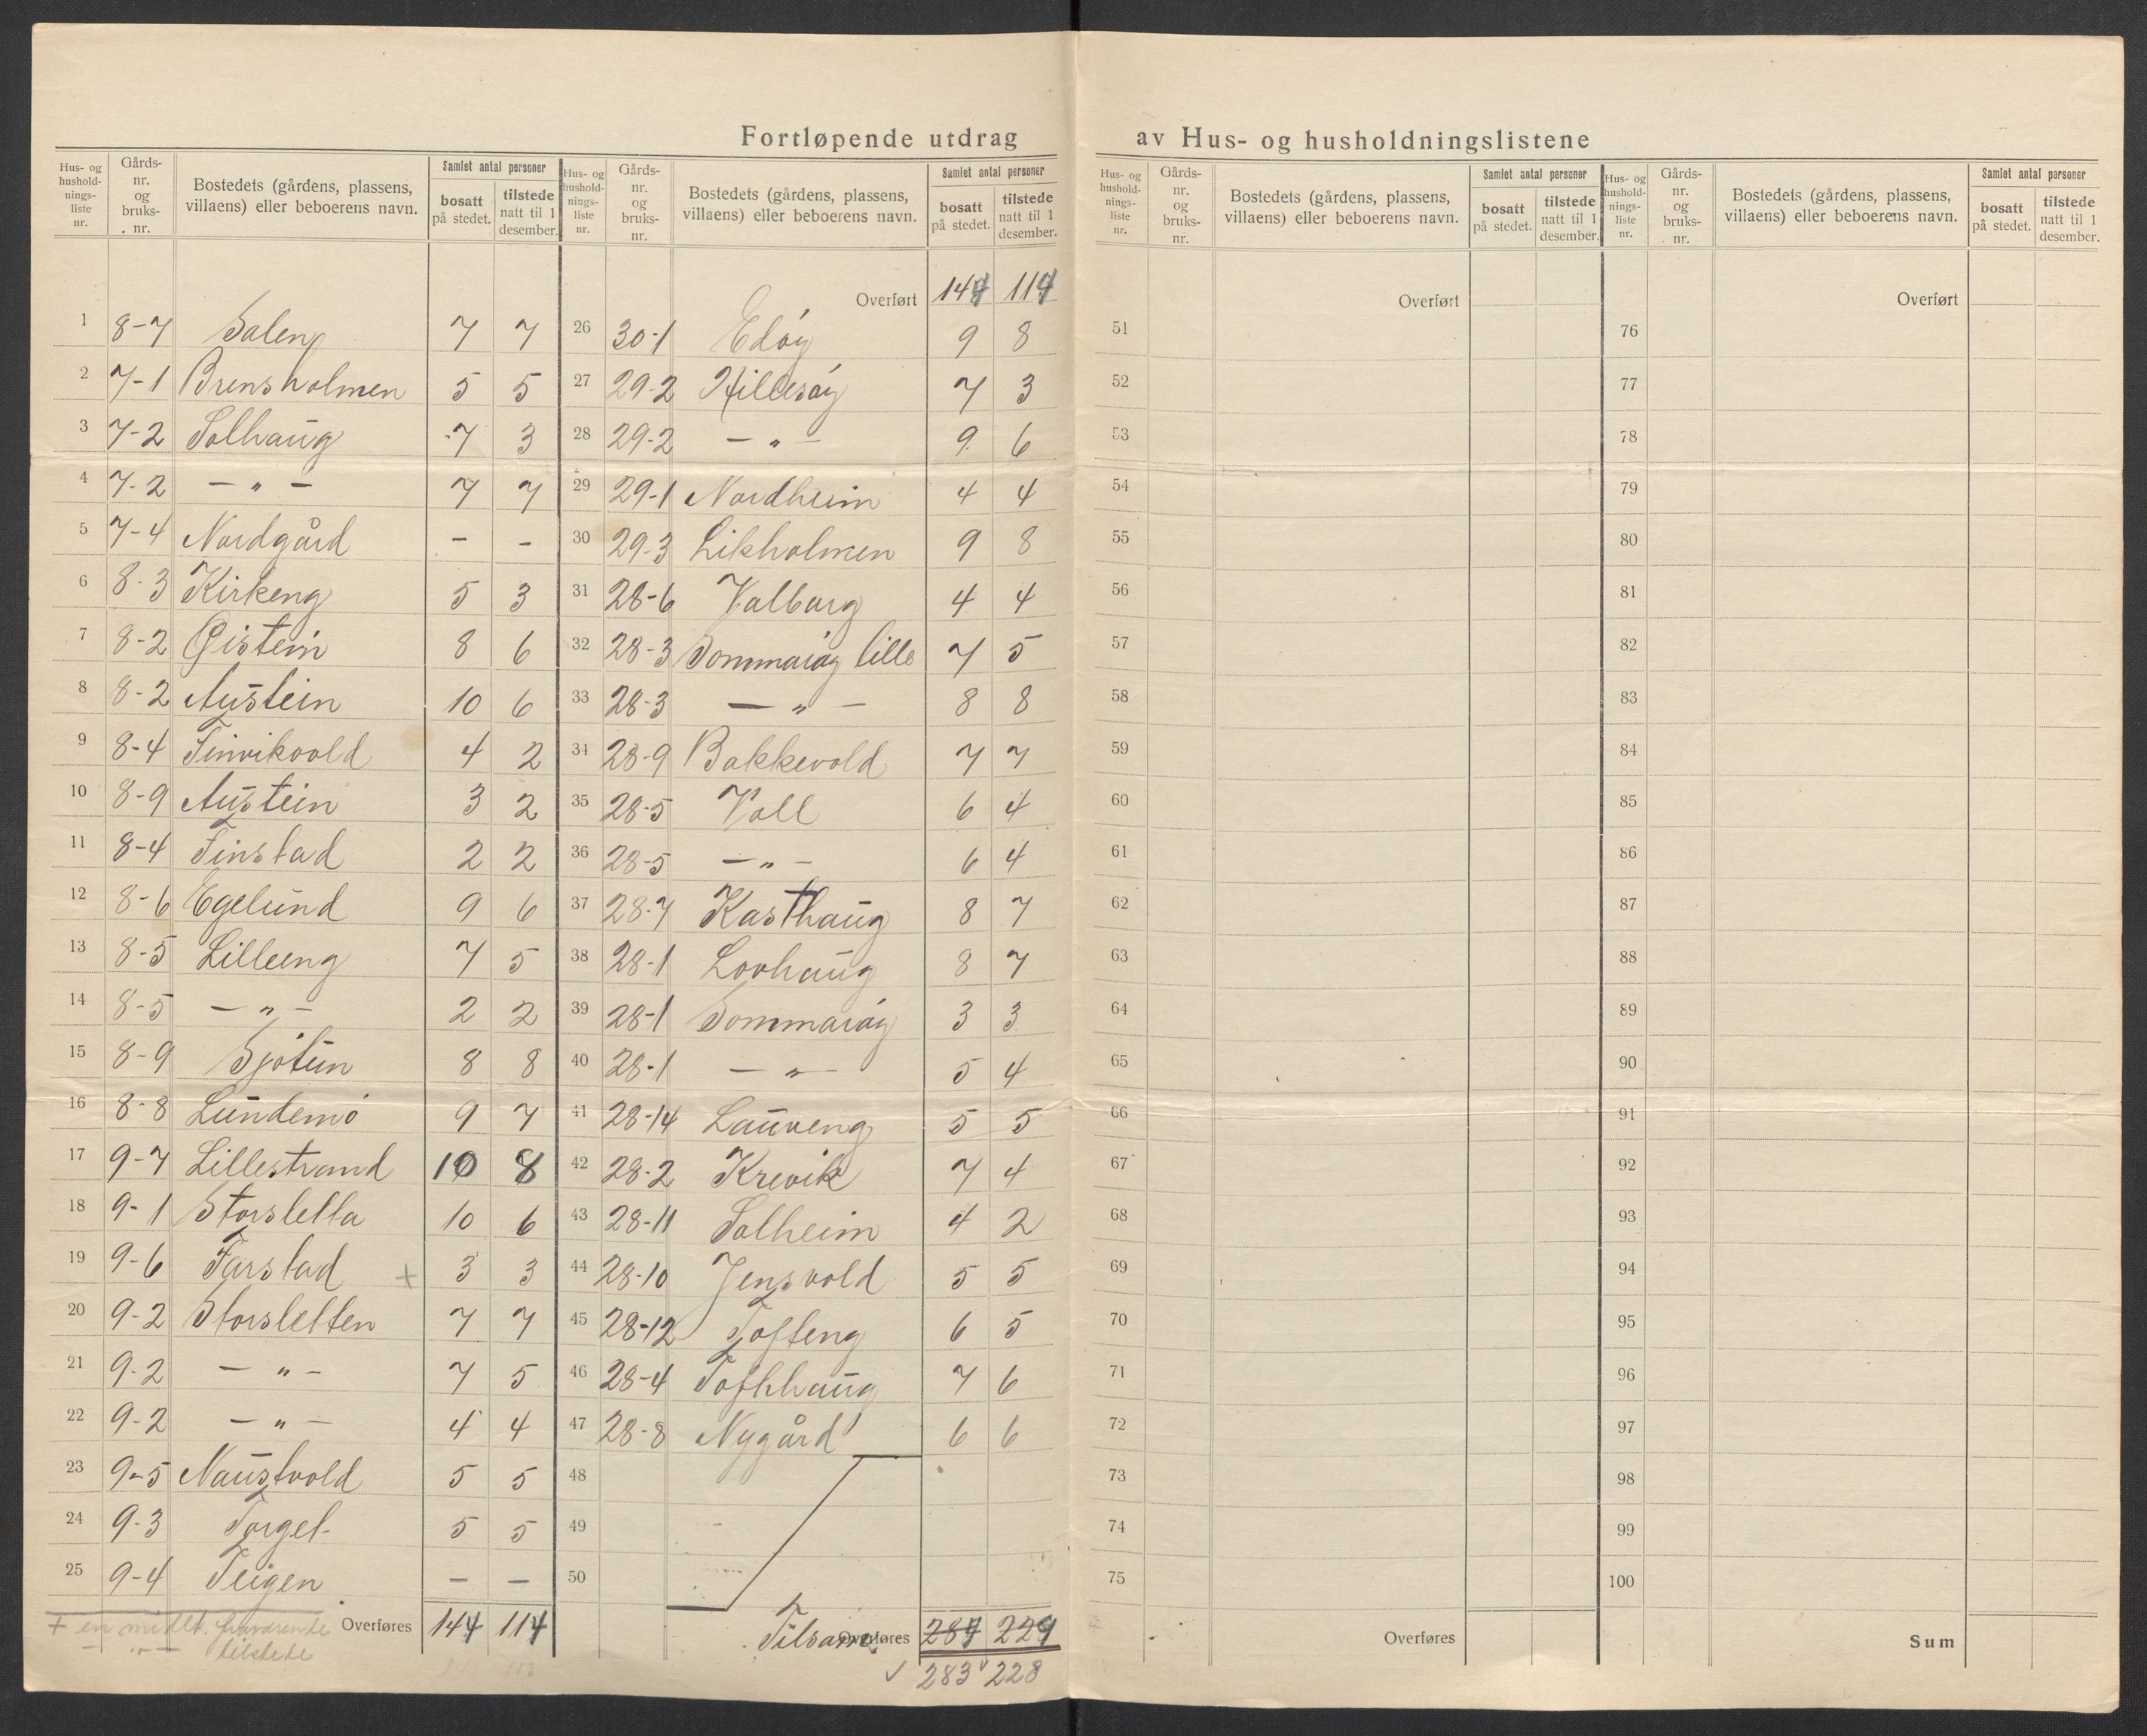 Fortløpende utdrag av Hus- og husholdningslistene
Hus- og hushold-nings-liste nr. | Gårds-nr. og bruks-nr. | Bostedets (gårdens, plassens, villaens) eller beboerens navn. | Samlet antal personer | bosatt på stedet. | tilstede natt til 1 desember.
1 8-7 Salen 7 7
2 7-1 Brensholmen 5 5
3 7-2 Solhaug 7 3
4 7-2 — „ — 7 7
5 7-4 Nordgård - -
6 8-3 Kirkeng 5 3
7 8-2 Øistein 8 6
8 8-2 Austein 10 6
9 8-4 Finvikvold 4 2
10 8-9 Austein 3 2
11 8-4 Finstad 2 2
12 8-6 Egelund 9 6
13 8-5 Lilleeng 7 5
14 8-5 — „ — 2 2
15 8-9 Sjøtun 8 8
16 8-8 Lundemo 9 7
17 9-7 Lillestrand 10 8
18 9-1 Storsletta 10 6
19 9-6 Farstad + 3 3
20 9-2 Storsletten 7 7
21 9-2 — „ — 7 5
22 9-2 — „ — 4 4
23 9-5 Naustvold 5 5
24 9-3 Torget 5 5
25 9-4 Teigen — —
Overføres 144 114
+ en midlt. fraværende
— „ — tilstede
Hus- og hushold-nings-liste nr. | Gårds-nr. og bruks-nr. | Bostedets (gårdens, plassens, villaens) eller beboerens navn. | Samlet antal personer | bosatt på stedet. | tilstede natt til 1 desember.
Overført 144 114
26 30-1 Edøy 9 8
27 29-2 Hillesøy 7 3
28 29-2 — „ — 9 6
29 29-1 Nordheim 4 4
30 29-3 Likholmen 9 8
31 28-6 Valborg 4 4
32 28-3 Sommarøy lille 7 5
33 28-3 — „ — 8 8
34 28-9 Bakkevold 7 7
35 28-5 Voll 6 4
36 28-5 — „ — 6 4
37 28-7 Kasthaug 8 7
38 28-1 Lovhaug 8 7
39 28-1 Sommarøy 3 3
40 28-1 — „ — 5 4
41 28-14 Lauveng 5 5
42 28-2 Krevik 7 4
43 28-11 Solheim 4 2
44 28-10 Jensvold 5 5
45 28-12 Tofteng 6 5
46 28-4 Tofthaug 7 6
47 28-8 Nygård 6 6
48
49
50
Tilsam. Overføres 287 229
283 228
Hus- og hushold-nings-liste nr. | Gårds-nr. og bruks-nr. | Bostedets (gårdens, plassens, villaens) eller beboerens navn. | Samlet antal personer | bosatt på stedet. | tilstede natt til 1 desember.
Overført
51
52
53
54
55
56
57
58
59
60
61
62
63
64
65
66
67
68
69
70
71
72
73
74
75
Overføres
Hus- og hushold-nings-liste nr. | Gårds-nr. og bruks-nr. | Bostedets (gårdens, plassens, villaens) eller beboerens navn. | Samlet antal personer | bosatt på stedet. | tilstede natt til 1 desember.
Overført
76
77
78
79
80
81
82
83
84
85
86
87
88
89
90
91
92
93
94
95
96
97
98
99
100
Sum